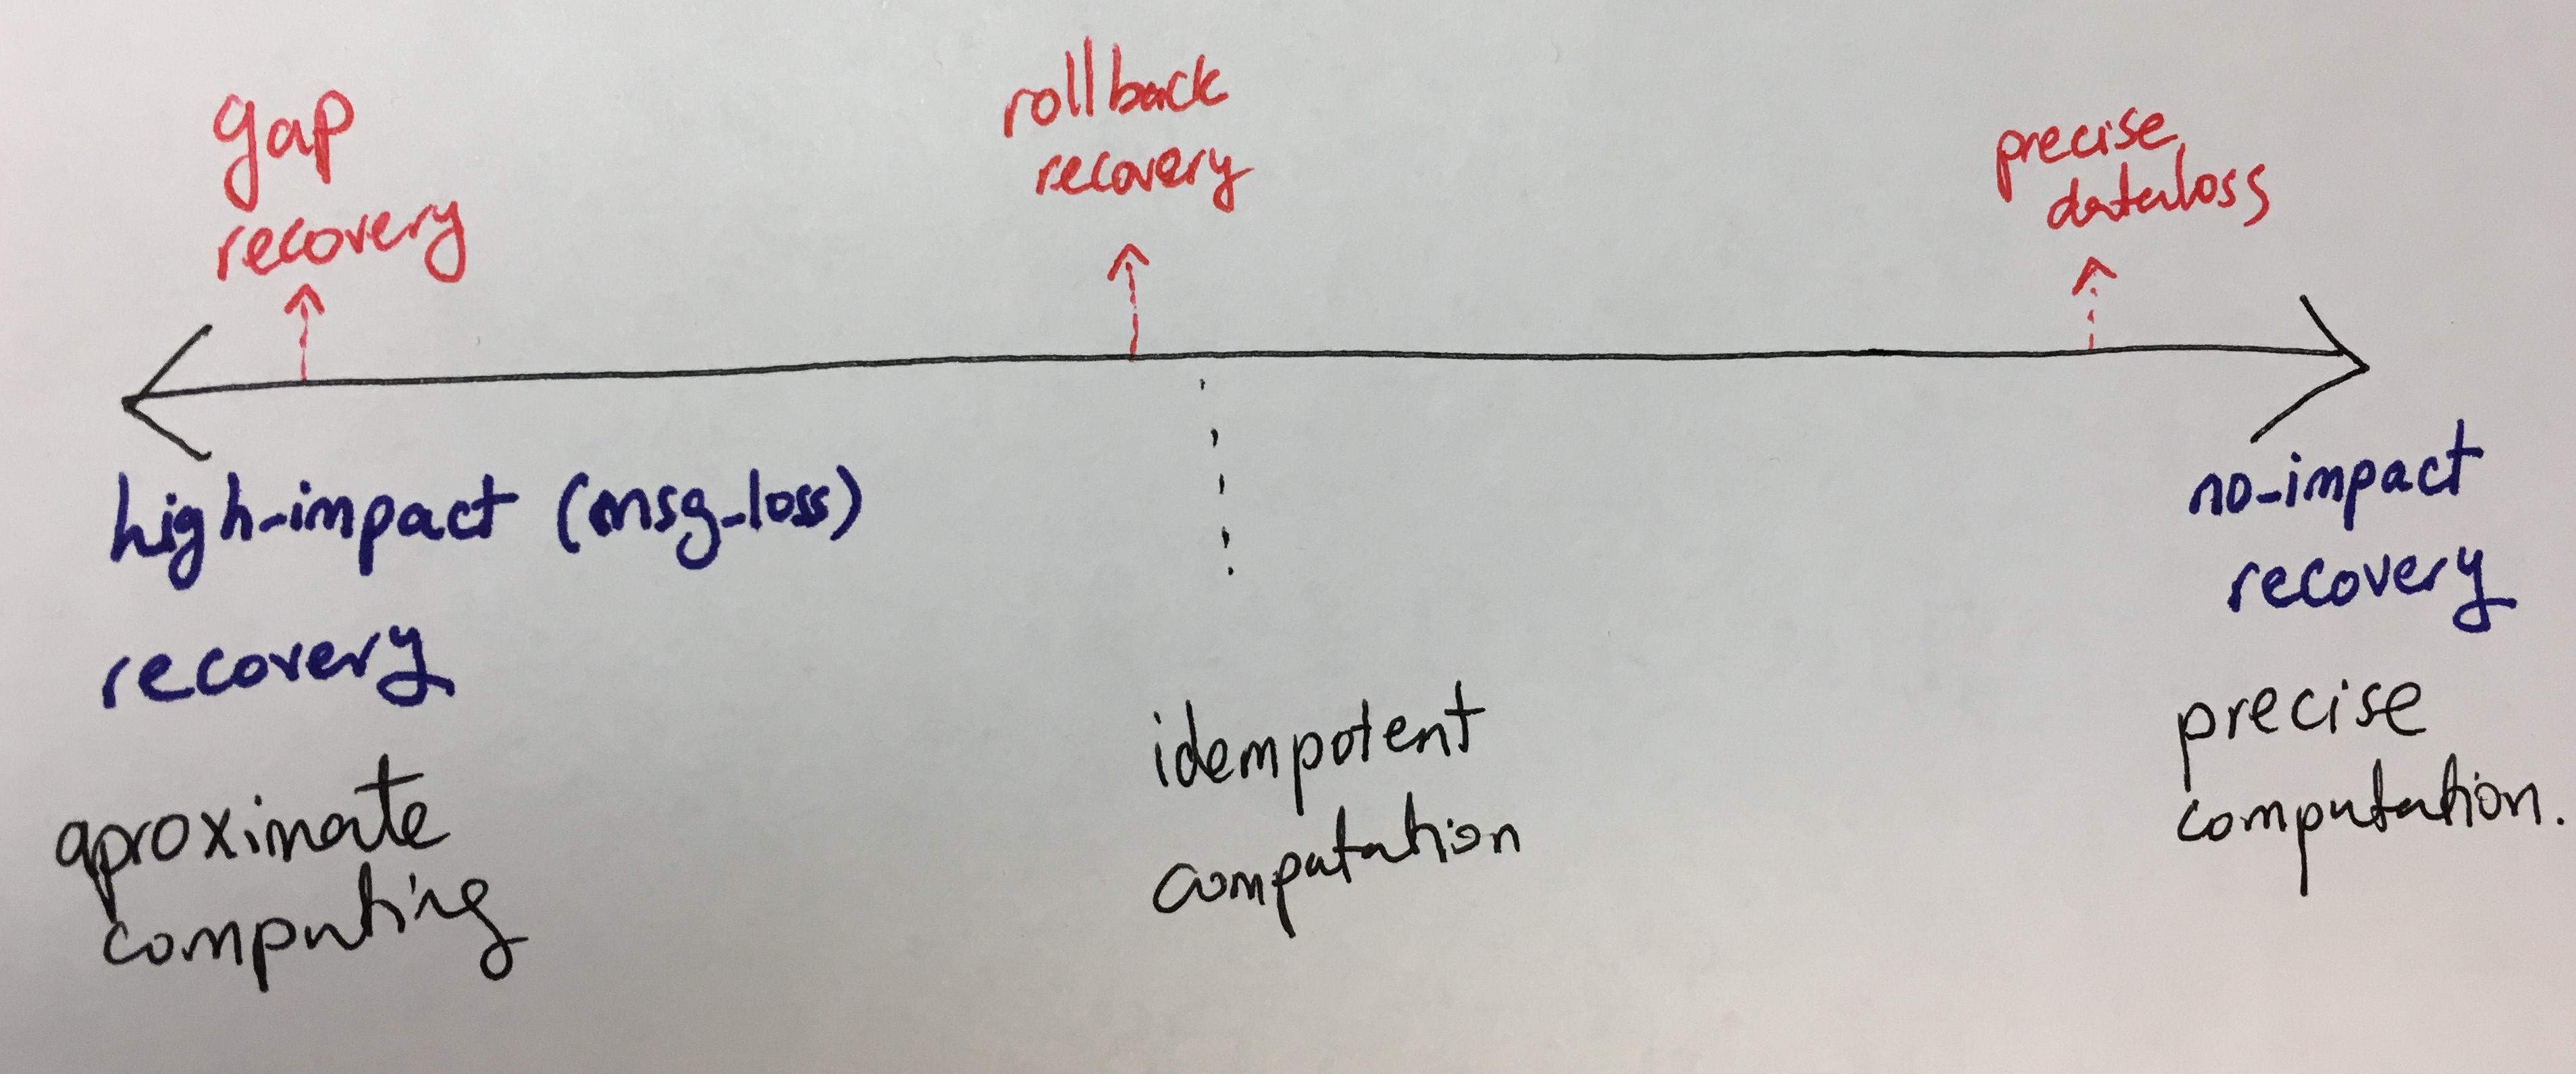 gap
recovery
rollback
recovery
precise
dataloss
high-impact (msg-loss)
recovery
no-impact
recovery
aproximate
computing
idempotent
computation
precise
computation.